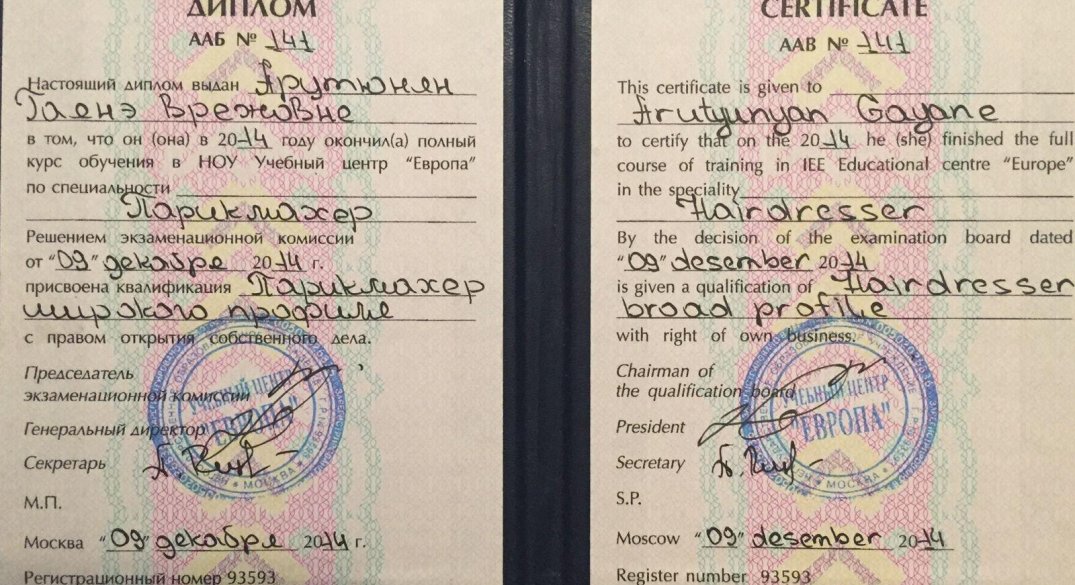 ДИПЛОМ
ААБ № 141
Настоящий диплом выдан Арутюнян
Гаянэ Врежовне
в том, что он (она) в 2014 году окончил(а) полный
курс обучения в НОУ Учебный центр "Европа"
по специальности
Парикмахер
Решением экзаменационной комиссии
от "09" декабря 2014 г.
присвоена квалификация Парикмахер
широкого профиля
с правом открытия собственного дела.
Председатель
экзаменационной комиссии
Генеральный директор
Секретарь
М.П.
Москва "09" декабря 2014 г.
Регистрационный номер 93593
УЧЕБНЫЙ ЦЕНТР
"ЕВРОПА"
МОСКВА
CERTIFICATE
AAB № 141
This certificate is given to
Arutyunyan Gayane
to certify that on the 2014 he (she) finished the full
course of training in IEE Educational centre "Europe"
in the speciality
Hairdresser
By the decision of the examination board dated
"09" desember 2014
is given a qualification of Hairdresser
broad profile
with right of own business.
Chairman of
the qualification board
President
Secretary
S.P.
Moscow "09" desember 2014
Register number 93593
УЧЕБНЫЙ ЦЕНТР
"ЕВРОПА"
МОСКВА